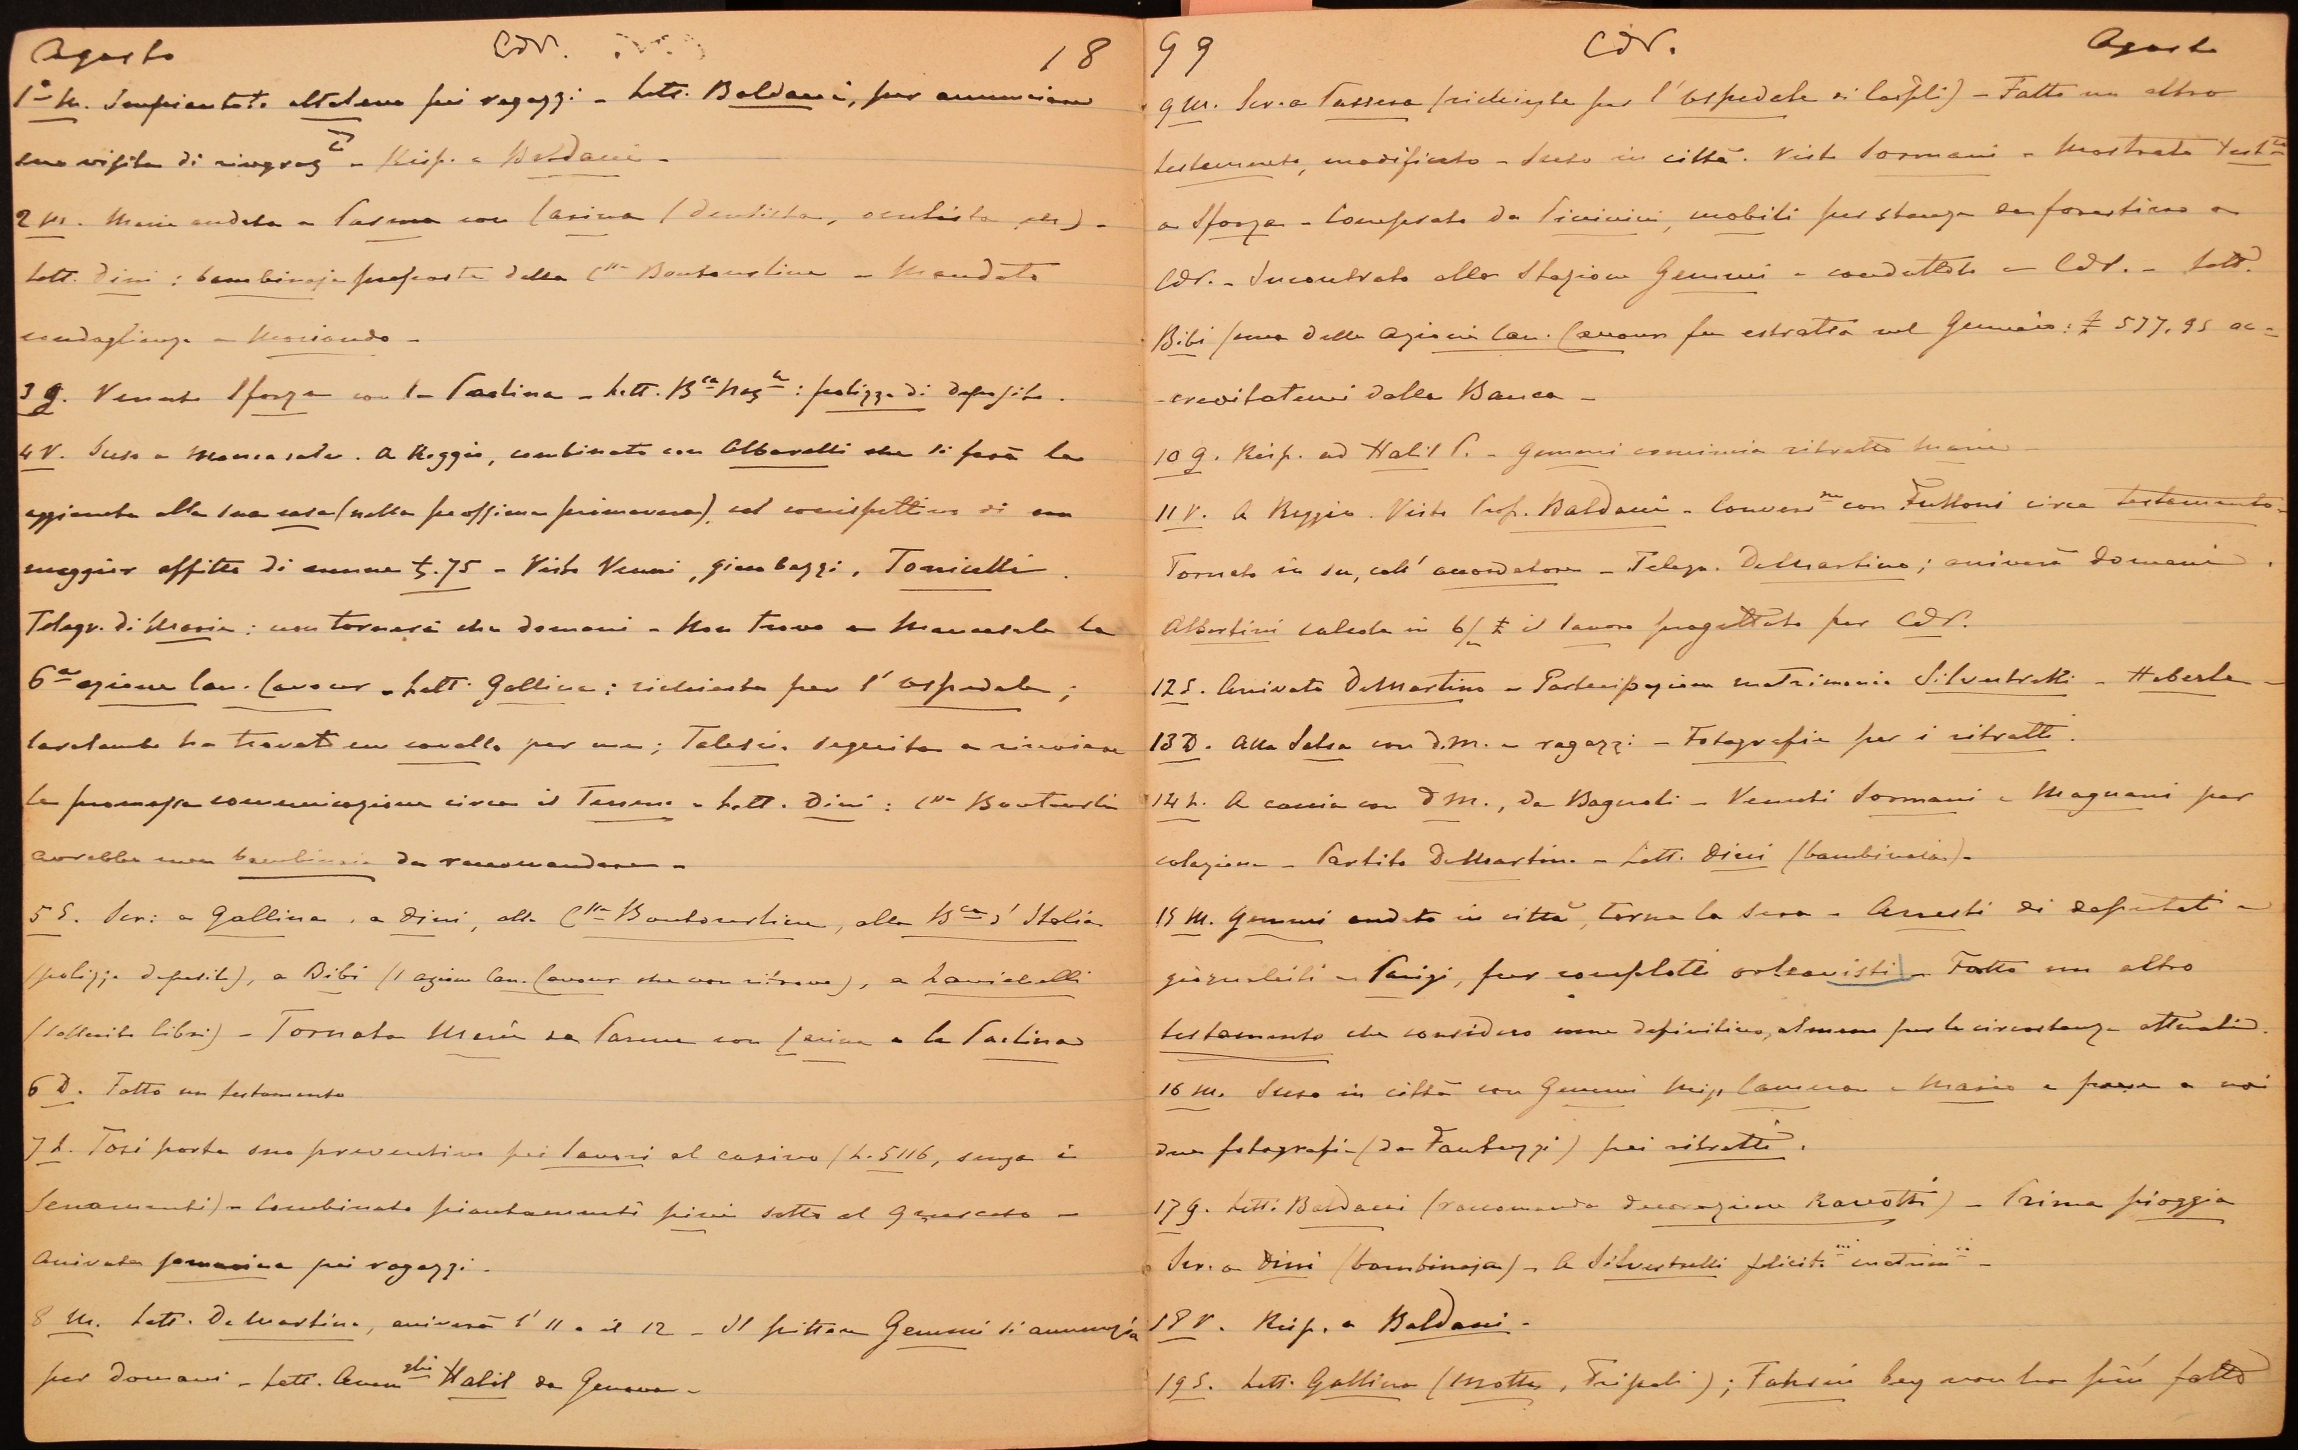 Agosto CdV. 18
1° M. Impiantato altalena pei ragazzi - Lett. Baldani, per annunciare
sua visita di ringraz - Risp. a Baldani -
2 M. Maria andata a Parma con (dentista, oculista etc) -
Lett. Dini : bambinaja proposta dalla C.ssa Boutourline - Mandato
condoglianze a
3 G. Venuto Sforza con la Paolina - Lett. B.ca Naz.le : polizza di deposito.
4 V. Sceso a Mancasale. A Reggio, combinato con Albarelli che si farà la
aggiunta alla sua casa (nella prossima primavera), col corrispettivo di un
maggior affitto di annue £. 75 - Visto Venni, Gambazzi, Tonicelli.
Telegr. di Maria : non tornerà che domani - Non trovo a Mancasale la
6a azione Can. Cavour - Lett. Gallina : richiesta per l'ospedale ;
ha trovato un cavallo per me ; seguita a rinviare
la promessa comunicazione circa il - Lett. Dini : C.ssa Boutourlin
avrebbe una bambinaia da raccomandare -
5 S. Scr: a Gallina, a Dini, alla C.ssa Boutourline, alla B.ca d'Italia
(polizza deposito), a Bibi (1 azione Can. Cavour che non ritrovo), a
(sollecito libri) - Tornata Maria da Parma con e la Paolina
6 D. Fatto un testamento
7 L. Tosi porta suo preventivo pei lavori al casino (L. 5116, senza i
serramenti) - Combinato piantamenti pini sotto al querceto -
Arrivata somarina pei ragazzi.
8 M. Lett. DeMartino, arriverà l'11 o il 12 - Il pittore Gemmi si annunzia
per domani - Lett. Habil da Genova -
99 CdV. Agosto
9 M. Scr. a Tassera (richieste per l'ospedale di ) - Fatto un altro
testamento, modificato - Sceso in città. Visto Sormani - Mostrato
a Sforza - Comprato da mobili per stanza da forestiero a
CdV. - Incontrato alla Stazione Gemmi - condottolo a CdV. - Lett.
Bibi (una delle azioni Can. Cavour fu estratta nel Gennaio : £ 537,95 ac=
-creditatemi dalla Banca -
10 G. Risp. ad Habil P. - Gemmi comincia ritratto Maria -
11 V. A Reggio. Visto Prof. Baldani - Convers.ne con circa testamento -
Tornato in su, coll'accordatore - Telegr. DeMartino ; arriverà domani.
Albertini calcola in 6/m £ il lavoro progettato per CdV.
12 S. Arrivato DeMartino - Partecipazione matrimonio Silvestrelli -
13 D. Alla Salsa con D.M. e ragazzi - Fotografie per i ritratti.
14 L. A caccia con D.M., da Bagnoli - Venuti Sormani e Magnani per
colazione - Partito DeMartino - Lett. Dini (bambinaia) -
15 M. Gemmi andato in città, torna la sera - Arresti di deputati e
giornalisti a Parigi, per complotti orleanisti - Fatto un altro
testamento che considero come definitivo, almeno per le circostanze attuali.
16 M. Sceso in città con Gemmi e Mario e posa a noi
due fotografie (da Fantuzzi) pei ritratti.
17 G. Lett. Baldani (raccomanda decorazione ) - Prima pioggia
Scr. a Dini (bambinaja) - A Silvestrelli felicit.ni matrim.io -
18 V. Risp. a Baldani -
19 S. Lett. Gallina (Motta, Tripoli) ; bey non ha più fatto